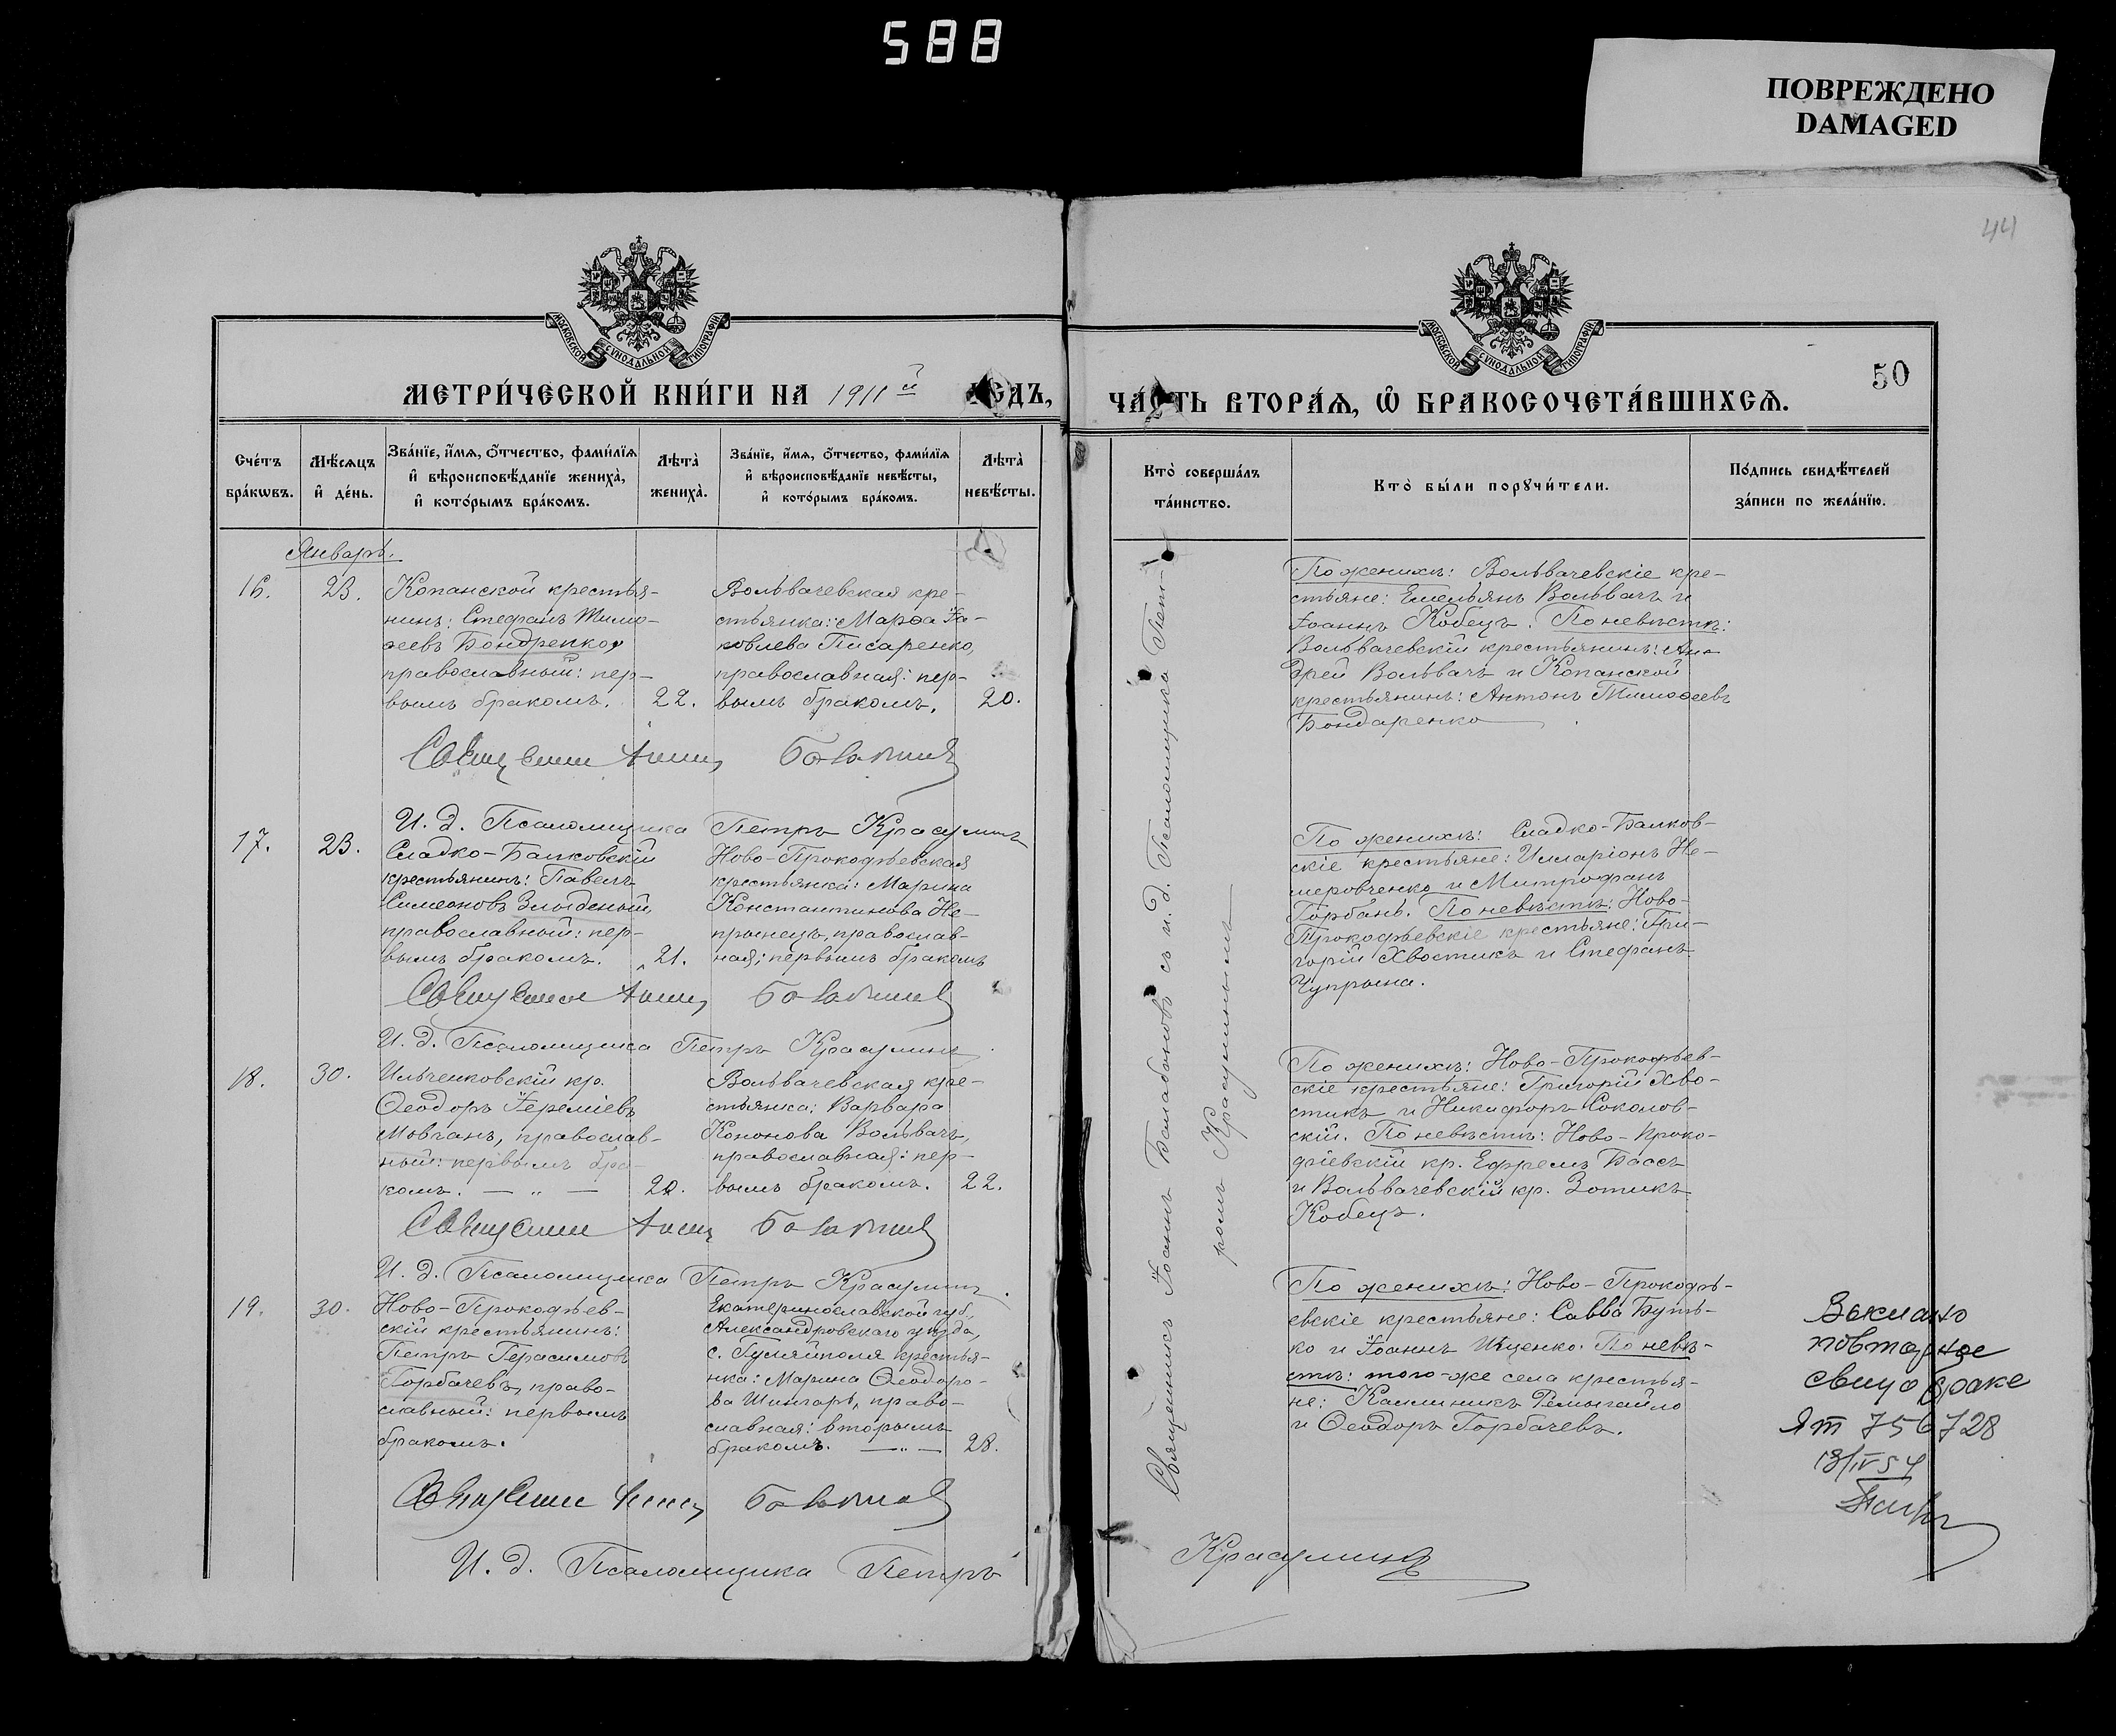 588
ПОВРЕЖДЕНО
DAMAGED
44
МОСКОВСКОЙ СУНОДАЛЬНОЙ ТИПОГРАФІИ
МЕТРИ́ЧЕСКОЙ КНИ́ГИ НА 1911 й ГОДЪ,
Сче́тъ
бра́кѡвъ.
Мѣ́сяцъ
и҆ де́нь.
Зва́нїе, и҆́мѧ, ѻ҆́тчество, фами́лїѧ
и҆ вѣроисповѣ́данїе жениха̀,
и҆ кото́рымъ бра́комъ.
Лѣта̀
жениха̀.
Зва́нїе, и҆́мѧ, ѻ҆́тчество, фами́лїѧ
и҆ вѣроисповѣ́данїе невѣ́сты,
и҆ кото́рымъ бра́комъ.
Лѣта̀
невѣ́сты.
Январь.
16.
23.
Копанской крестья-
нинъ: Стефанъ Тимо-
ѳеевъ Бондренко,
православный: пер-
вымъ бракомъ.
22.
Вольвачевская кре-
стьянка: Марѳа Іа-
ковлева Писаренко,
православная: пер-
вымъ бракомъ.
20.
Священникъ Іоаннъ Балабановъ
И. д. Псаломщика Петръ Красулинъ
17.
23.
Сладко-Балковскій
крестьянинъ: Павелъ
Симеоновъ Злыденый,
православный: пер-
вымъ бракомъ.
21.
Ново-Прокофьевская
крестьянка: Марина
Константинова Не-
прынецъ, православ-
ная; первымъ бракомъ
Священникъ Іоаннъ Балабановъ
И. д. Псаломщика Петръ Красулинъ
18.
30.
Ильченковскій кр.
Ѳеодоръ Іереміевъ
Мовчанъ, православ-
ный: первымъ бра-
комъ. — „ —
20.
Вольвачевская кре-
стьянка: Варвара
Кононова Вольвачъ,
православная: пер-
вымъ бракомъ.
22.
Священникъ Іоаннъ Балабановъ
И. д. Псаломщика Петръ Красулинъ.
19.
30.
Ново-Прокофьев-
скій крестьянинъ:
Петръ Герасимовъ
Горбачевъ, право-
славный: первымъ
бракомъ.
Екатеринославской губ.,
Александровскаго уѣзда,
с. Гуляйполя крестья-
нка: Марина Ѳеодоро-
ва Шингарь, право-
славная: вторымъ
бракомъ. — „ —
28.
Священникъ Іоаннъ Балабановъ
И. д. Псаломщика Петръ
МОСКОВСКОЙ СУНОДАЛЬНОЙ ТИПОГРАФІИ
50
ЧА́СТЬ ВТОРА́Ѧ, Ѡ҆ БРАКОСОЧЕТА́ВШИХСѦ.
Кто̀ соверша́лъ
та́инство.
Кто̀ бы́ли порꙋчи́тели.
По́дпись свидѣ́телей
за́писи по жела́нїю.
Священникъ Іоаннъ Балабановъ съ и. д. Псаломщика Пет-
ромъ Красулинымъ
По женихѣ: Вольвачевскіе кре-
стьяне: Емельянъ Вольвачъ и
Іоаннъ Кобецъ. По невѣстѣ:
Вольвачевскій крестьянинъ: Ан-
дрей Вольвачъ и Копанской
крестьянинъ: Антонъ Тимоѳеевъ
Бондаренко
По женихѣ: Сладко-Балков-
скіе крестьяне: Илларіонъ Не-
меровченко и Митрофанъ
Горбань. По невѣстѣ: Ново-
Прокофьевскіе крестьяне: Гри-
горій Хвостикъ и Стефанъ
Чупрына.
По женихѣ: Ново-Прокофьев-
скіе крестьяне: Григорій Хво-
стикъ и Никифоръ Соколов-
скій. По невѣстѣ: Ново-Проко-
фіевскій кр. Ефремъ Бассъ
и Вольвачевскій кр. Зотикъ
Кобецъ.
По женихѣ: Ново-Прокофь-
евскіе крестьяне: Савва Буть-
ко и Іоаннъ Ищенко. По невѣ-
стѣ: того-же села крестья-
не: Каллиникъ Ремыгайло
и Ѳеодоръ Горбачевъ.
Красулинъ
Выслано
повторное
свид о браке
Ят 756728
13/IV 54